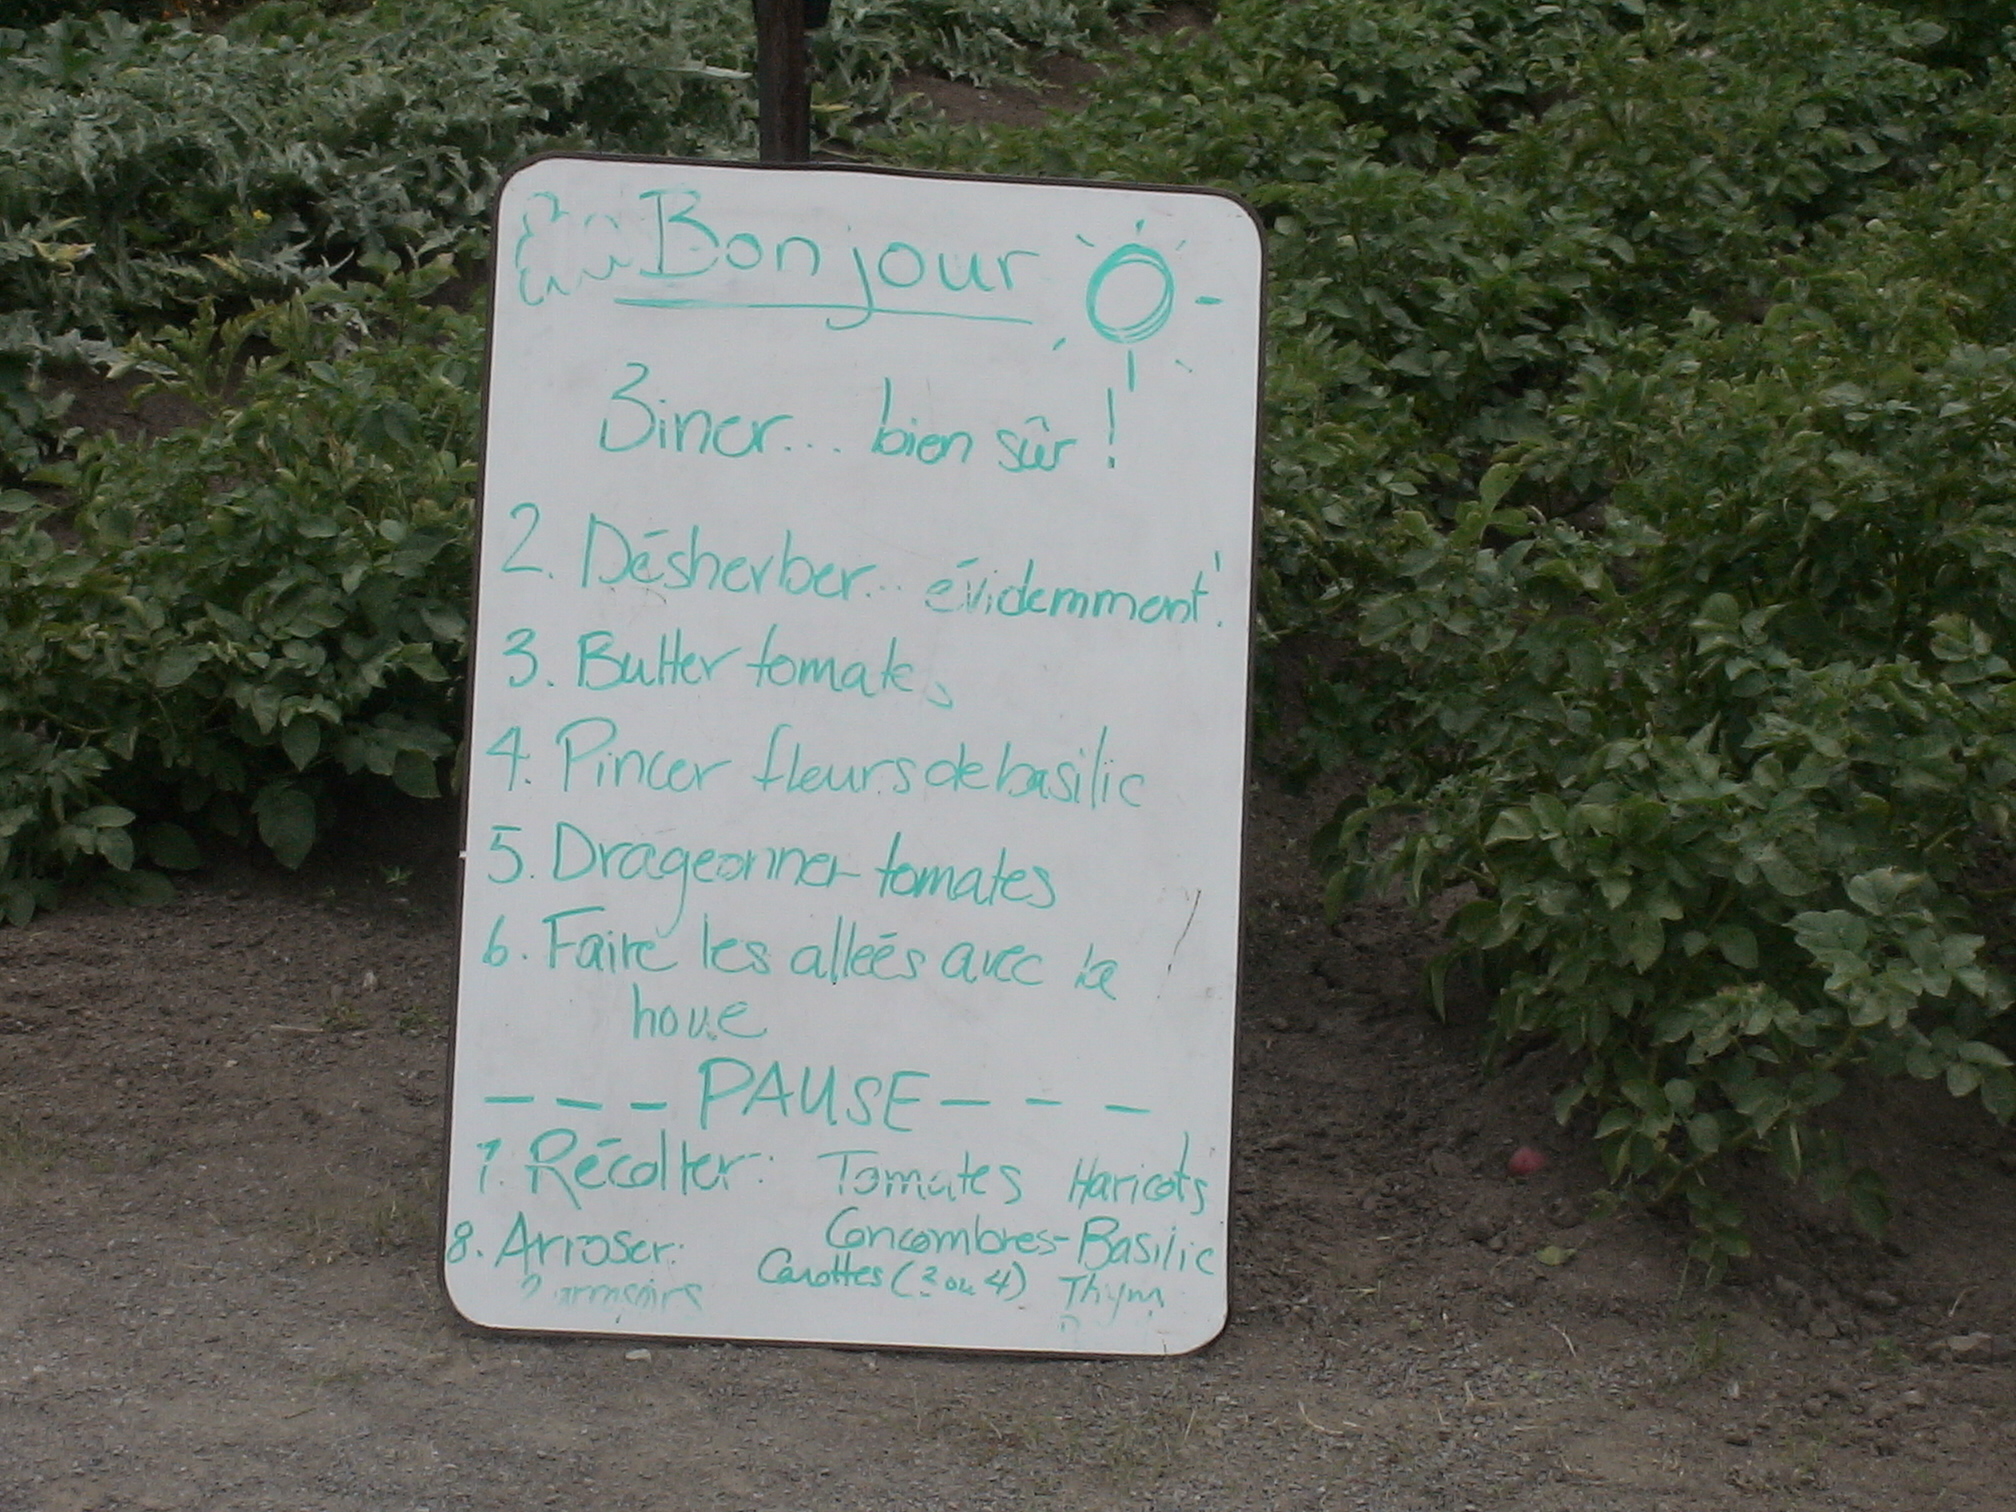 Bonjour
Biner... bien sûr !
2. Désherber... évidemment!
3. Butter tomates
4. Pincer fleurs de basilic
5. Drageonner tomates
6. Faire les alleés avec la
houe
--- PAUSE - - -
7. Récolter: Tomates Haricots
8. Arroser: Concombres- Basilic
Carottes (3 ou 4) Thym